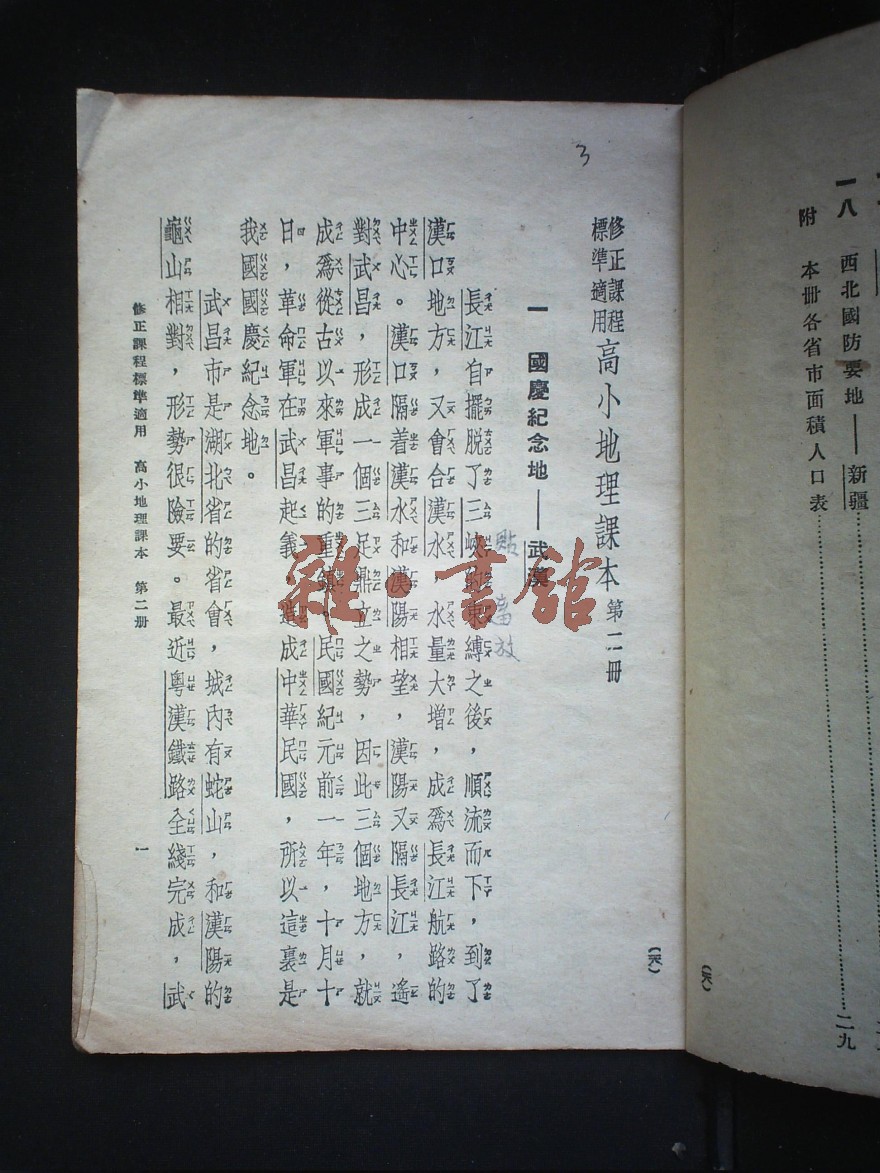 一八 西北國防要地——新疆……二九
附 本册各省市面積人口表……
(六)
3
修正課程標準適用 高小地理課本 第二冊
(六)
一 國慶紀念地——武漢
長江自擺脫了三峽的束縛之後，順流而下，到了
漢口地方，又會合漢水，水量大增，成爲長江航路的
中心。漢口隔着漢水和漢陽相望，漢陽又隔長江，遙
對武昌，形成一個三足鼎立之勢，因此三個地方，就
成爲從古以來軍事的重鎮。民國紀元前一年，十月十
日，革命軍在武昌起義，造成中華民國，所以這裏是
我國國慶紀念地。
武昌市是湖北省的省會，城內有蛇山，和漢陽的
龜山相對，形勢很險要。最近粵漢鐵路全綫完成，武
修正課程標準適用 高小地理課本 第二册 一
雜·書館